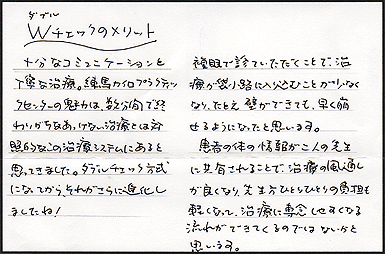 ダブル
Wチェックのメリット
十分なコミュニケーションと
丁寧な治療。練馬カイロプラクティッ
クセンターの魅力は、数分間で終
わりがちなあっけない治療とは対
照的なこの治療システムにあると
思ってきました。ダブルチェック方式
になってから、それがさらに進化し
ましたね!
複眼で診ていただくことで、治
療が袋小路に入り込むことが少なく
なり、たとえ壁ができても、早く崩
せるようになったと思います。
患者の体の情報が二人の先生
に共有されることで、治療の風通し
が良くなり、先生方ひとりひとりの負担も
軽くなって、治療に専念しやすくなる
流れができてくるのではないかと
思います。